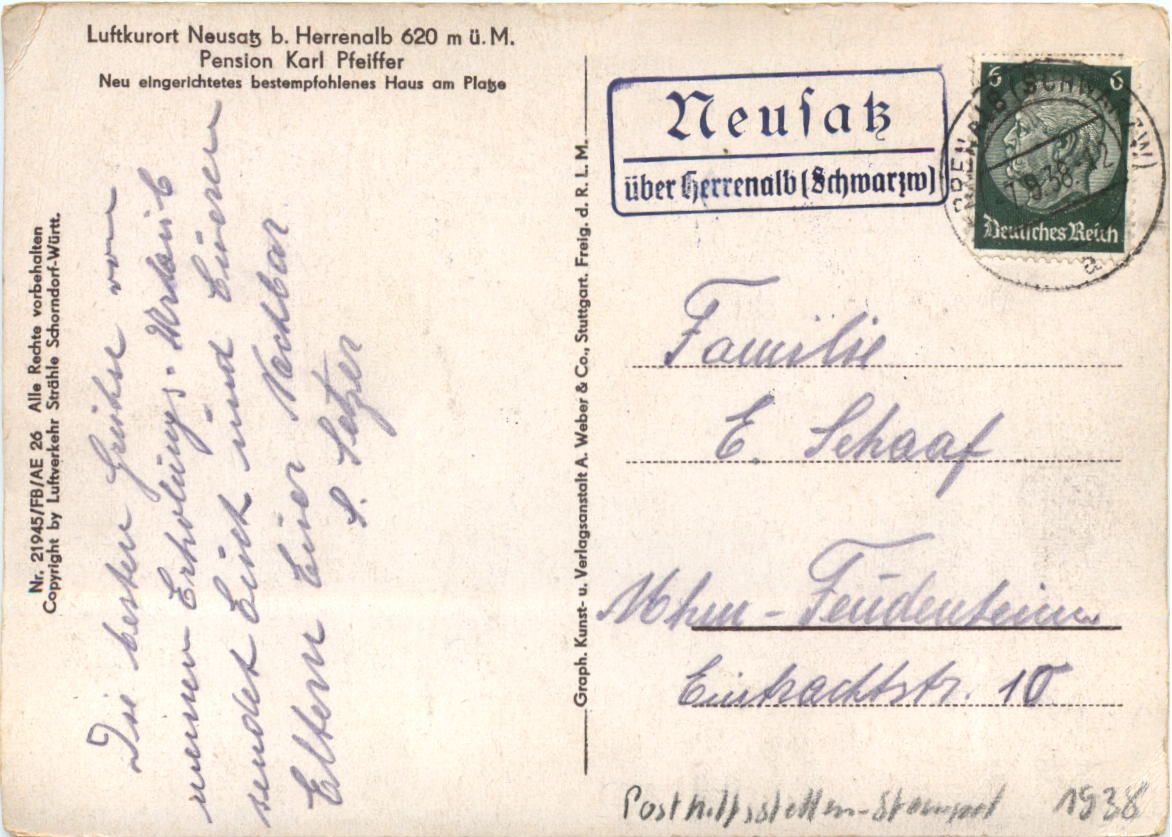 Luftkurort Neusatz b. Herrenalb 620 m ü. M.
Pension Karl Pfeiffer
Neu eingerichtetes bestempfohlenes Haus am Platze
Nr. 21945/FB/AE 26 Alle Rechte vorbehalten
Copyright by Luftverkehr Strähle Schorndorf-Württ.
Die besten Grüße von
meinem Erholungs-Urlaub
sendet Euch und Eueren
Eltern Euer Nachbar
S. Setzer
Graph. Kunst- u. Verlagsanstalt A. Weber & Co., Stuttgart. Freig. d. R. L. M.
Neusatz
über Herrenalb (Schwarzw)
6 6
Deutsches Reich
HERRENALB (SCHWARZW)
38-12
a
Familie
E. Schaaf
Mhm-Feudenheim
Eintrachtstr. 10
Posthilfsstellen-Stempel 1938